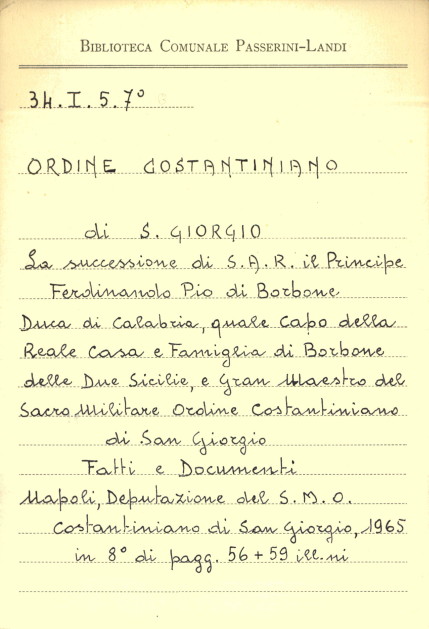 BIBLIOTECA COMUNALE PASSERINI-LANDI
34.I.5.7°
ORDINE COSTANTINIANO
di S. GIORGIO
La successione di S.A.R. il Principe
Ferdinando Pio di Borbone
Duca di Calabria, quale Capo della
Reale Casa e Famiglia di Borbone
delle Due Sicilie, e Gran Maestro del
Sacro Militare Ordine Costantiniano
di San Giorgio
Fatti e Documenti
Napoli, Deputazione del S.M.O.
Costantiniano di San Giorgio, 1965
in 8° di pagg. 56+59 ill.ni